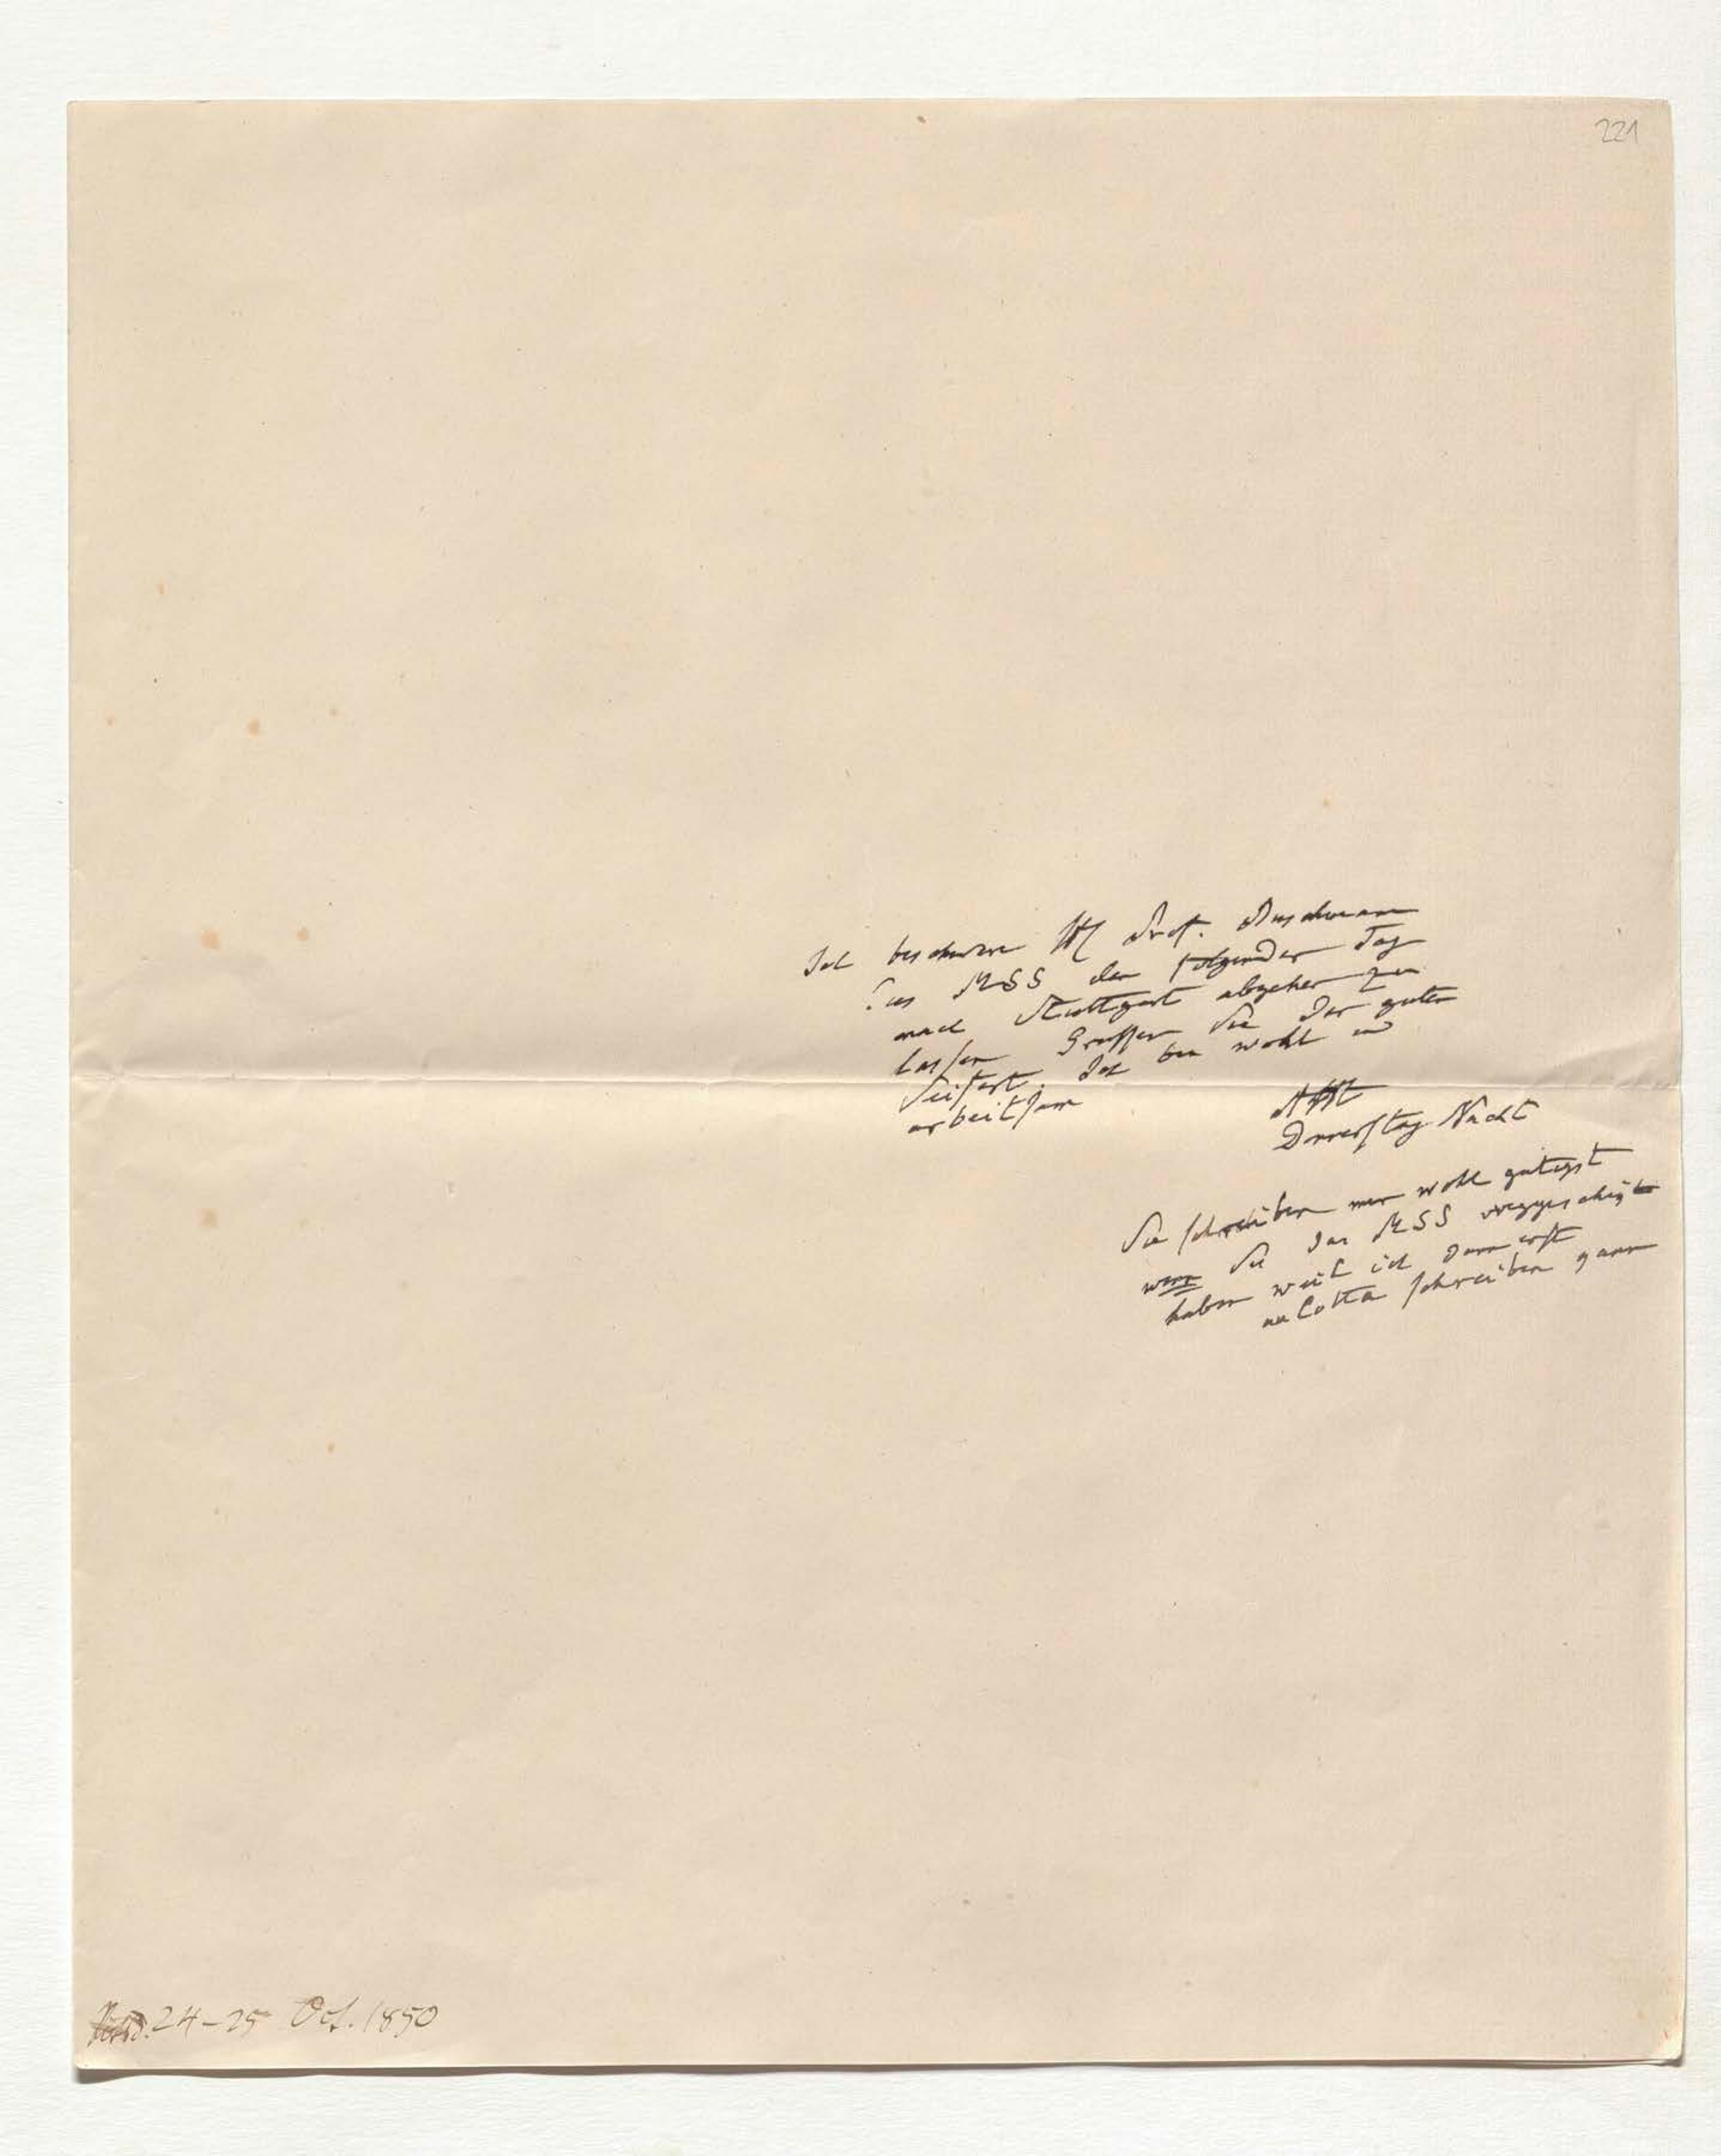 221
Ich beschwöre H Prof. Buschmann
das MSS den folgenden Tag
nach Stuttgart abgehen zu
lassen Grüssen Sie den guten
Seifert. Ich bin wohl und
arbeitsam
AHt
Donnerstag Nacht
Sie schreiben mir wohl gütigst
wann Sie das MSS weggeschikt
haben weil ich dann erst
an Cotta schreiben kann
24-25 Oct. 1850